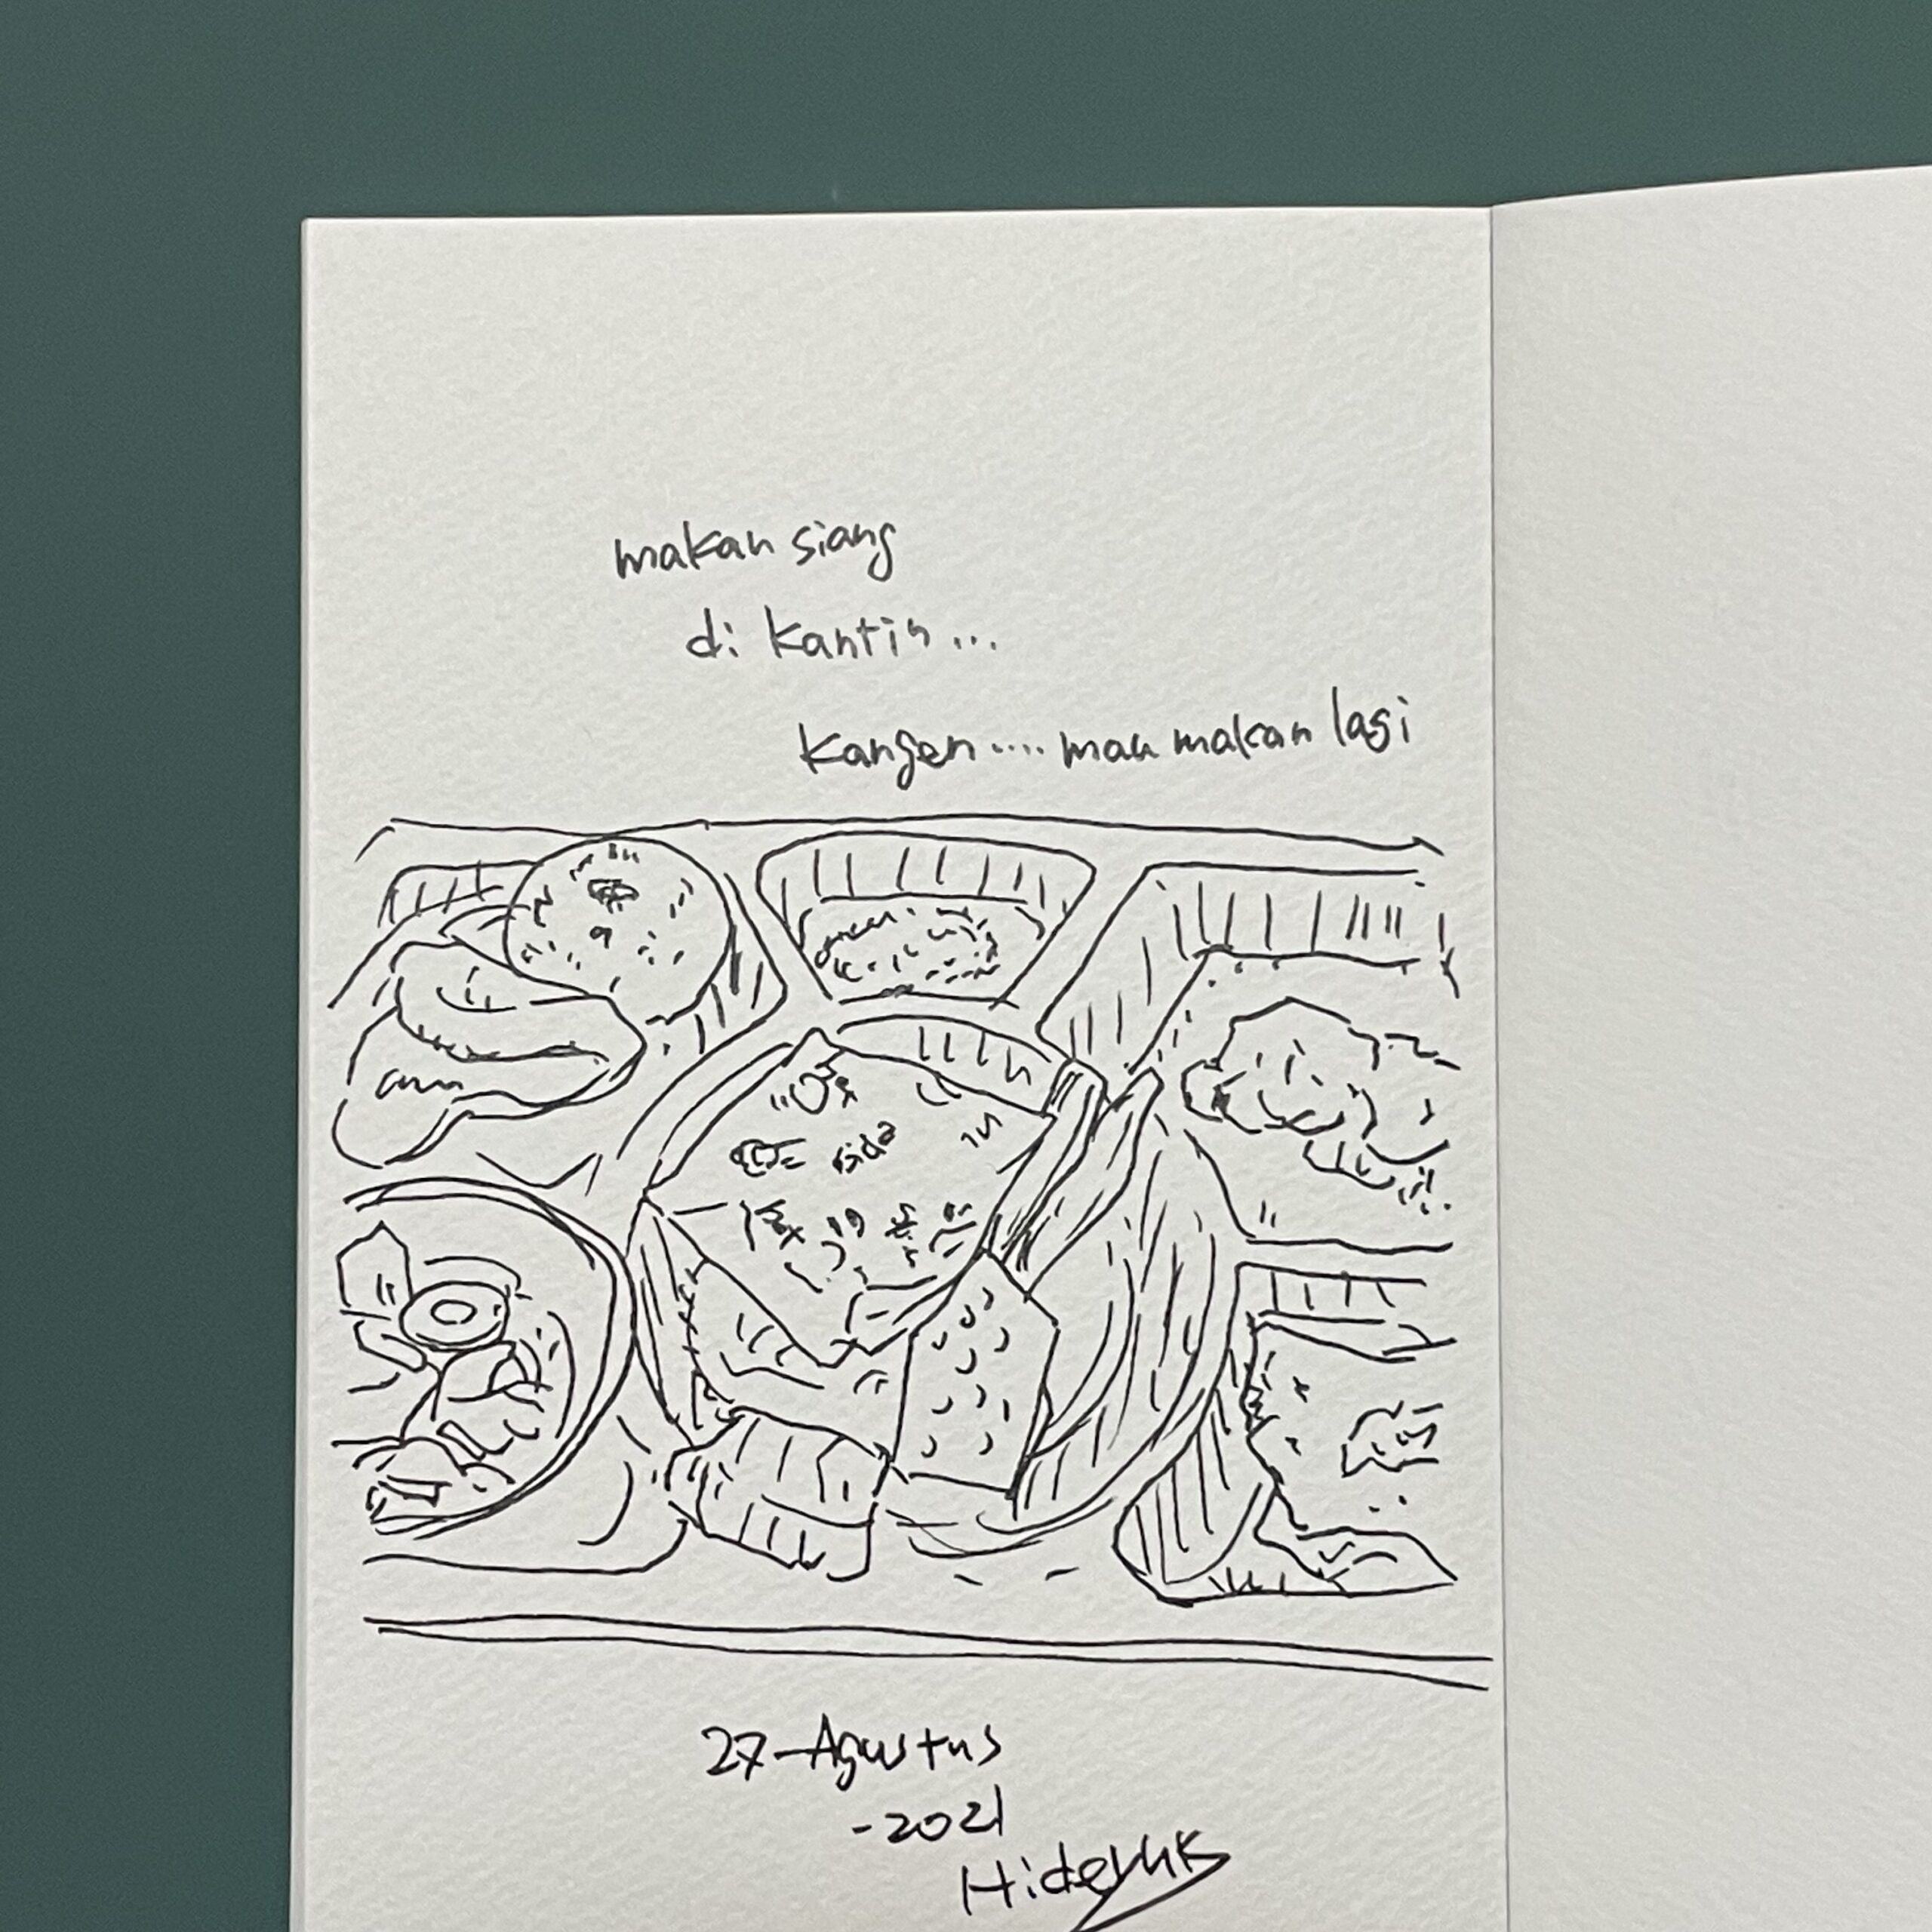 makan siang
di kantin...
Kangen.... mau makan lagi
27-Agustus
-2021
Hideyuk